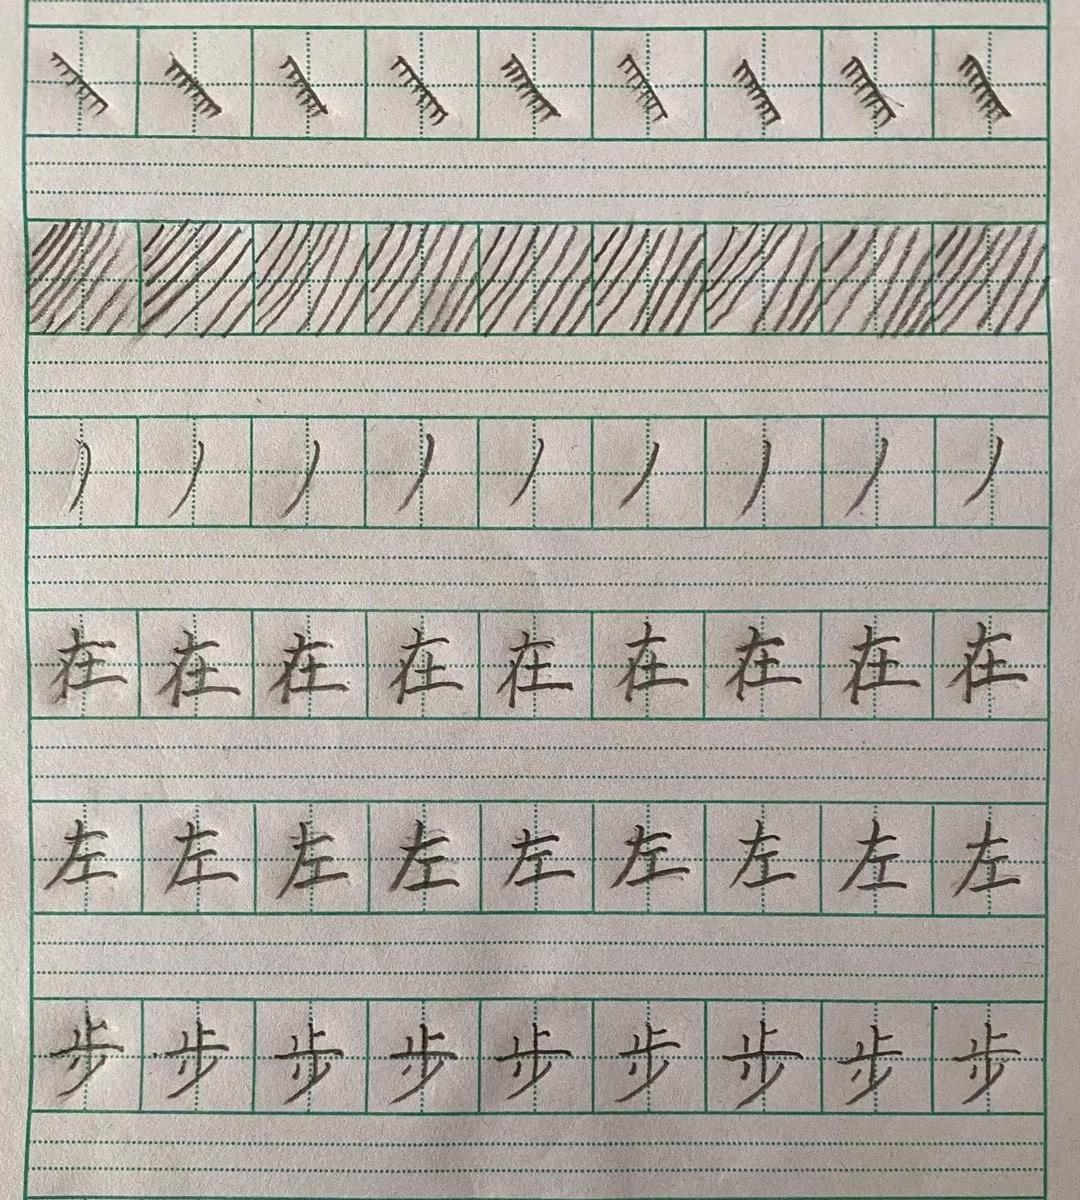 丿丿丿丿丿丿丿丿丿
在在在在在在在在在
左左左左左左左左左
步步步步步步步步步